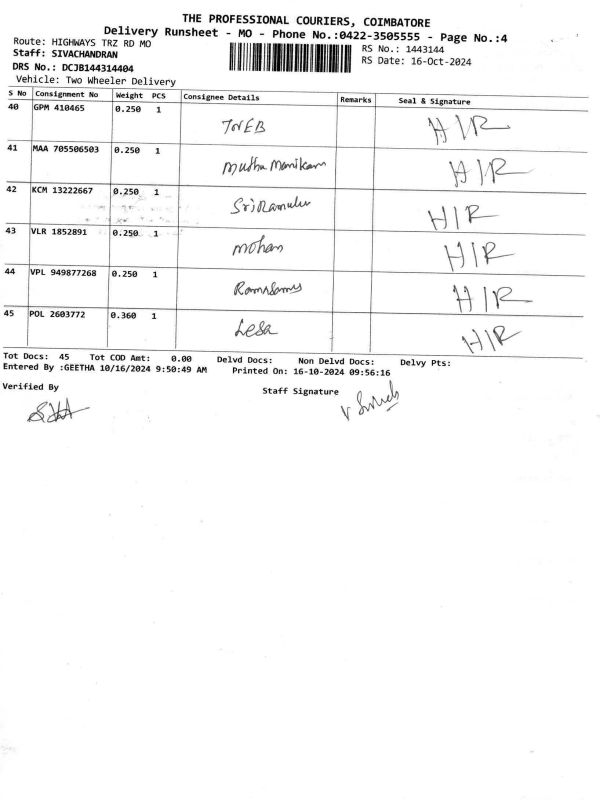 THE PROFESSIONAL COURIERS, COIMBATORE
Delivery Runsheet - MO - Phone No.:0422-3505555 - Page No.:4
Route: HIGHWAYS TRZ RD MO RS No.: 1443144
Staff: SIVACHANDRAN RS Date: 16-Oct-2024
DRS No.: DCJB144314404
Vehicle: Two Wheeler Delivery
S No Consignment No Weight PCS Consignee Details Remarks Seal & Signature
40 GPM 410465 0.250 1 TNEB H/R
41 MAA 705506503 0.250 1 Muthu Manikam H/R
42 KCM 13222667 0.250 1 SriRamulu H/R
43 VLR 1852891 0.250 1 mohan H/R
44 VPL 949877268 0.250 1 Ramasamy H/R
45 POL 2603772 0.360 1 Lesa H/R
Tot Docs: 45 Tot COD Amt: 0.00 Delvd Docs: Non Delvd Docs: Delvy Pts:
Entered By :GEETHA 10/16/2024 9:50:49 AM Printed On: 16-10-2024 09:56:16
Verified By Staff Signature